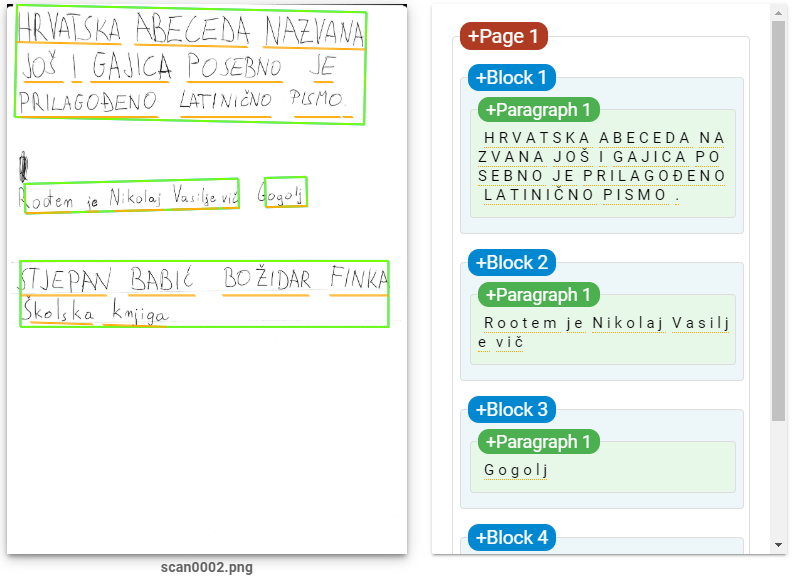 HRVATSKA ABECEDA NAZVANA
JOŠ I GAJICA POSEBNO JE
PRILAGOĐENO LATINIČNO PISMO.
Rođen je Nikolaj Vasiljevič Gogolj
STJEPAN BABIĆ BOŽIDAR FINKA
Školska knjiga
scan0002.png
+Page 1
+Block 1
+Paragraph 1
HRVATSKA ABECEDA NA
ZVANA JOŠ I GAJICA PO
SEBNO JE PRILAGOĐENO
LATINIČNO PISMO .
+Block 2
+Paragraph 1
Rootem je Nikolaj Vasilj
e vič
+Block 3
+Paragraph 1
Gogolj
+Block 4